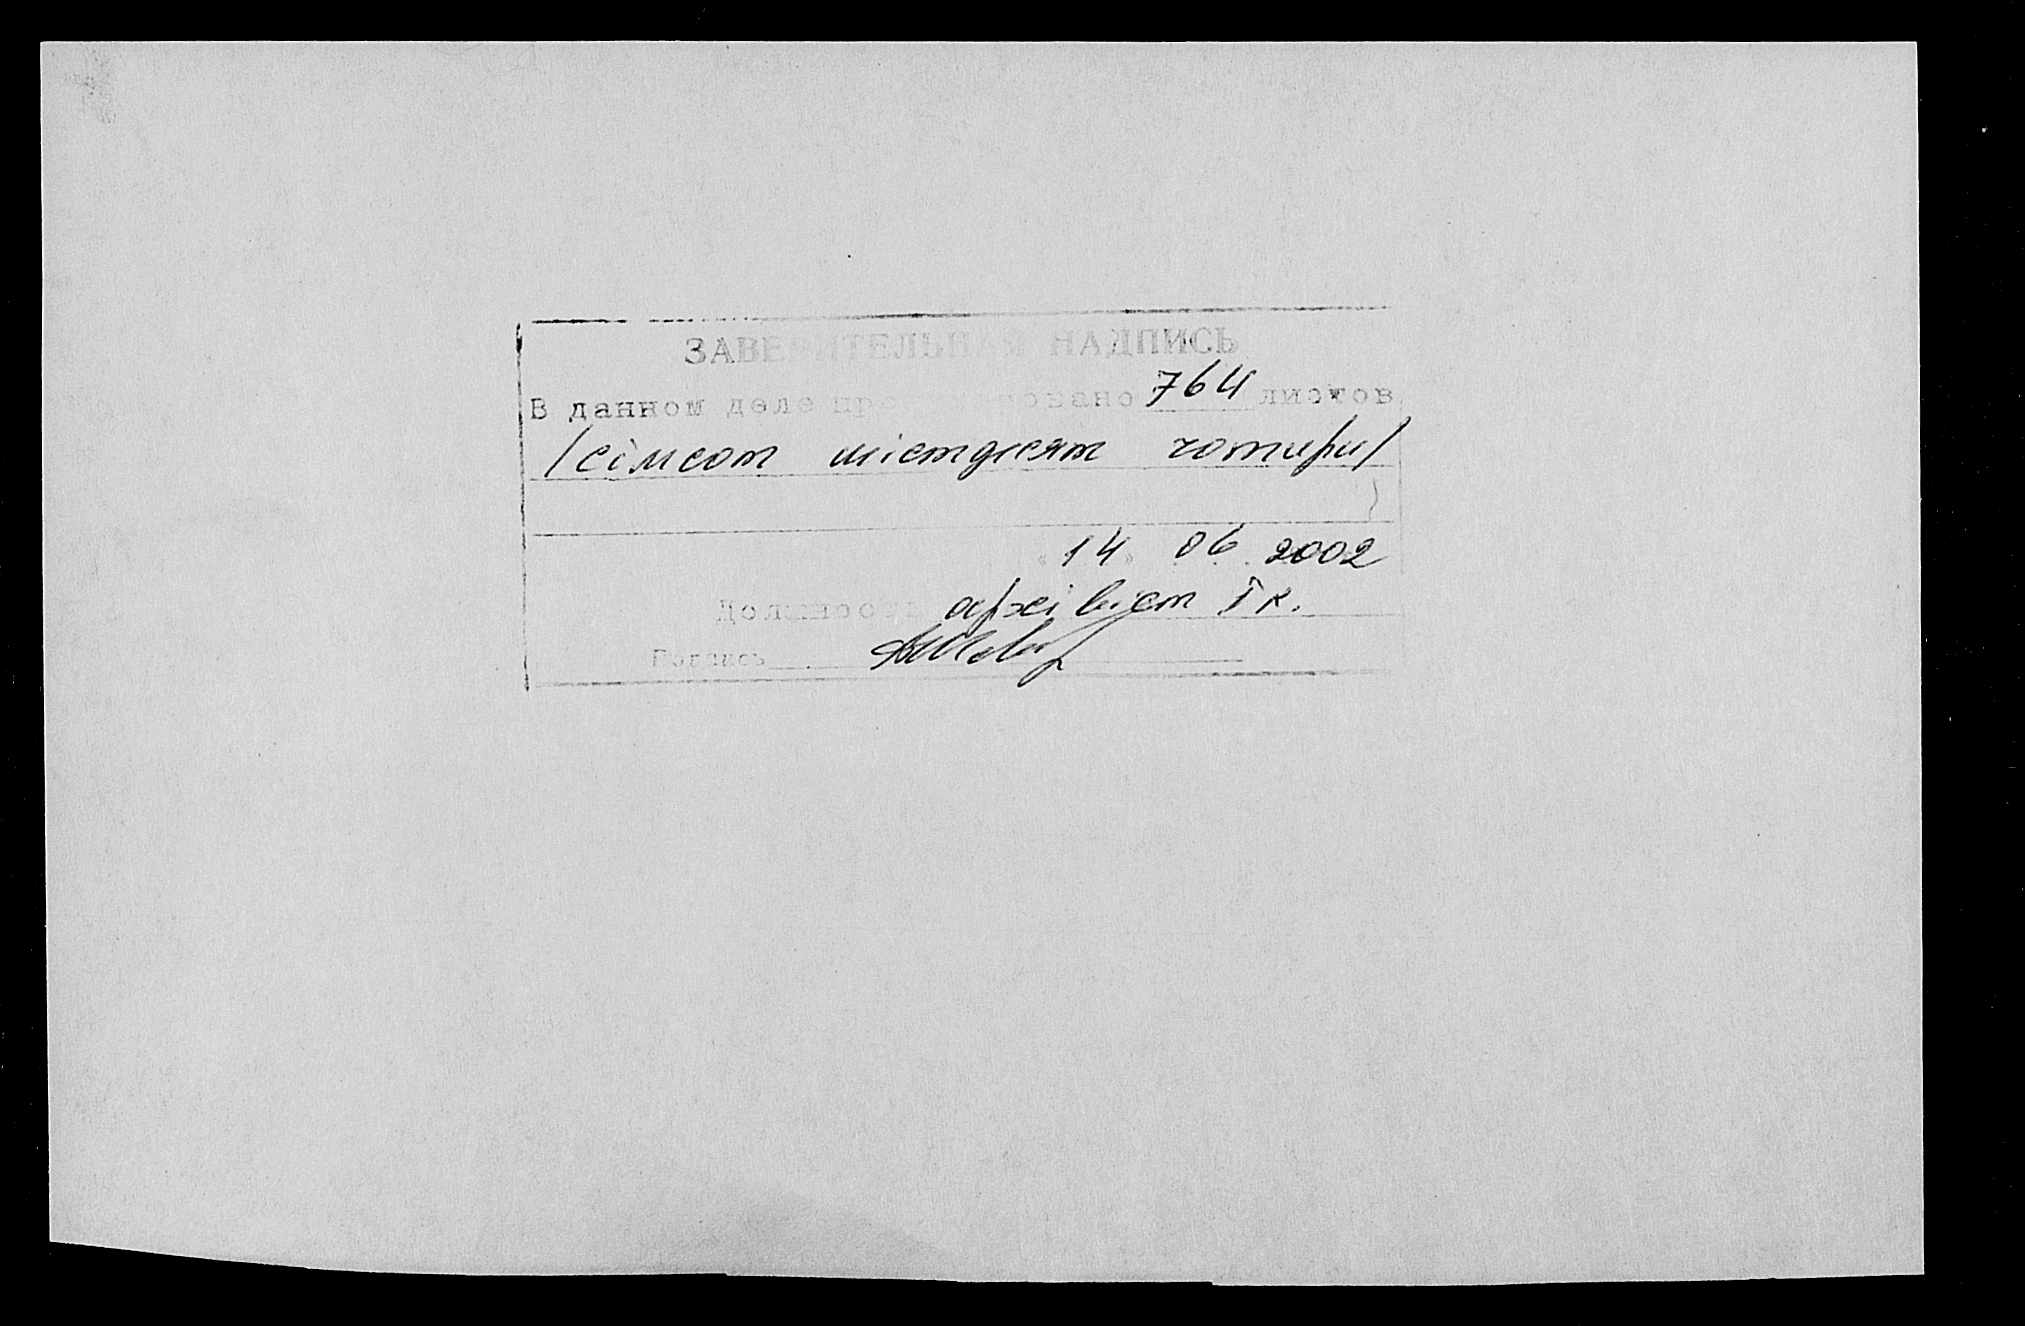 ЗАВЕРИТЕЛЬНАЯ НАДПИСЬ
В данном деле пронумеровано 764 листов
/сімсот шістдесят чотири/
« 14 » 06 2002
Должность архівіст І к.
Подпись